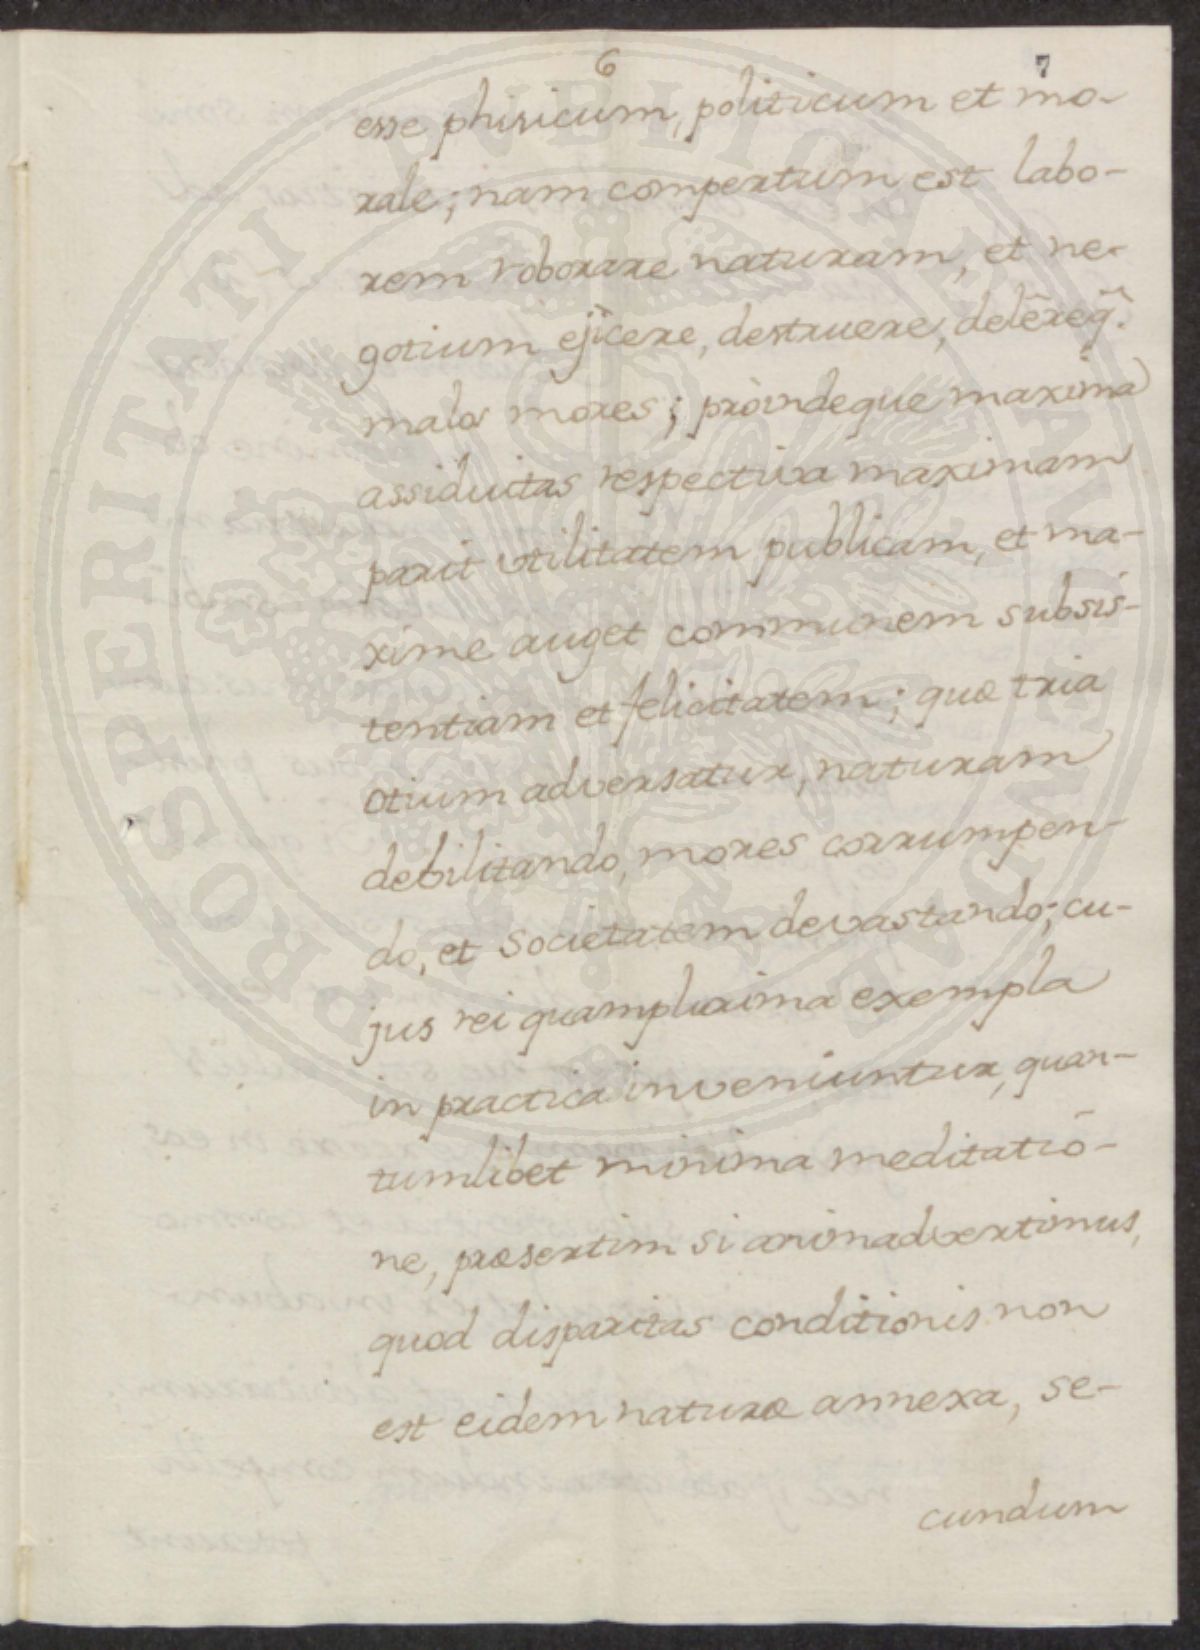 6
7
esse phisicum, politicum et mo-
rale; nam compertum est labo-
rem roborare naturam, et ne-
gotium ejicere, destruere, delēreq̃.
malos mores; pròindeque maxima
assiduitas respectiva maximam
parit utilitatem publicam, et ma-
xime auget communem subsis-
tentiam et felicitatem; quæ tria
otium adversatur, naturam
debilitando, mores corrumpen-
do, et Societatem devastando; cu-
jus rei quamplurima exempla
in practica inveniuntur, quan-
tumlibet minima meditatiō-
ne, præsertim si animadvertimus,
quod disparitas conditionis non
est eidem naturæ annexa, se-
cundum
PROSPERITATI PUBLICAE AUGENDAE